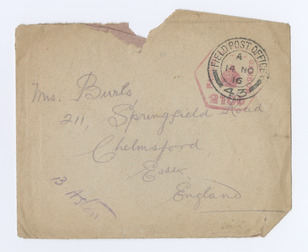 FIELD POST OFFICE
A
14 NO
16
43
Mrs. Burls
211, Springfield Road
Chelmsford
Essex
England